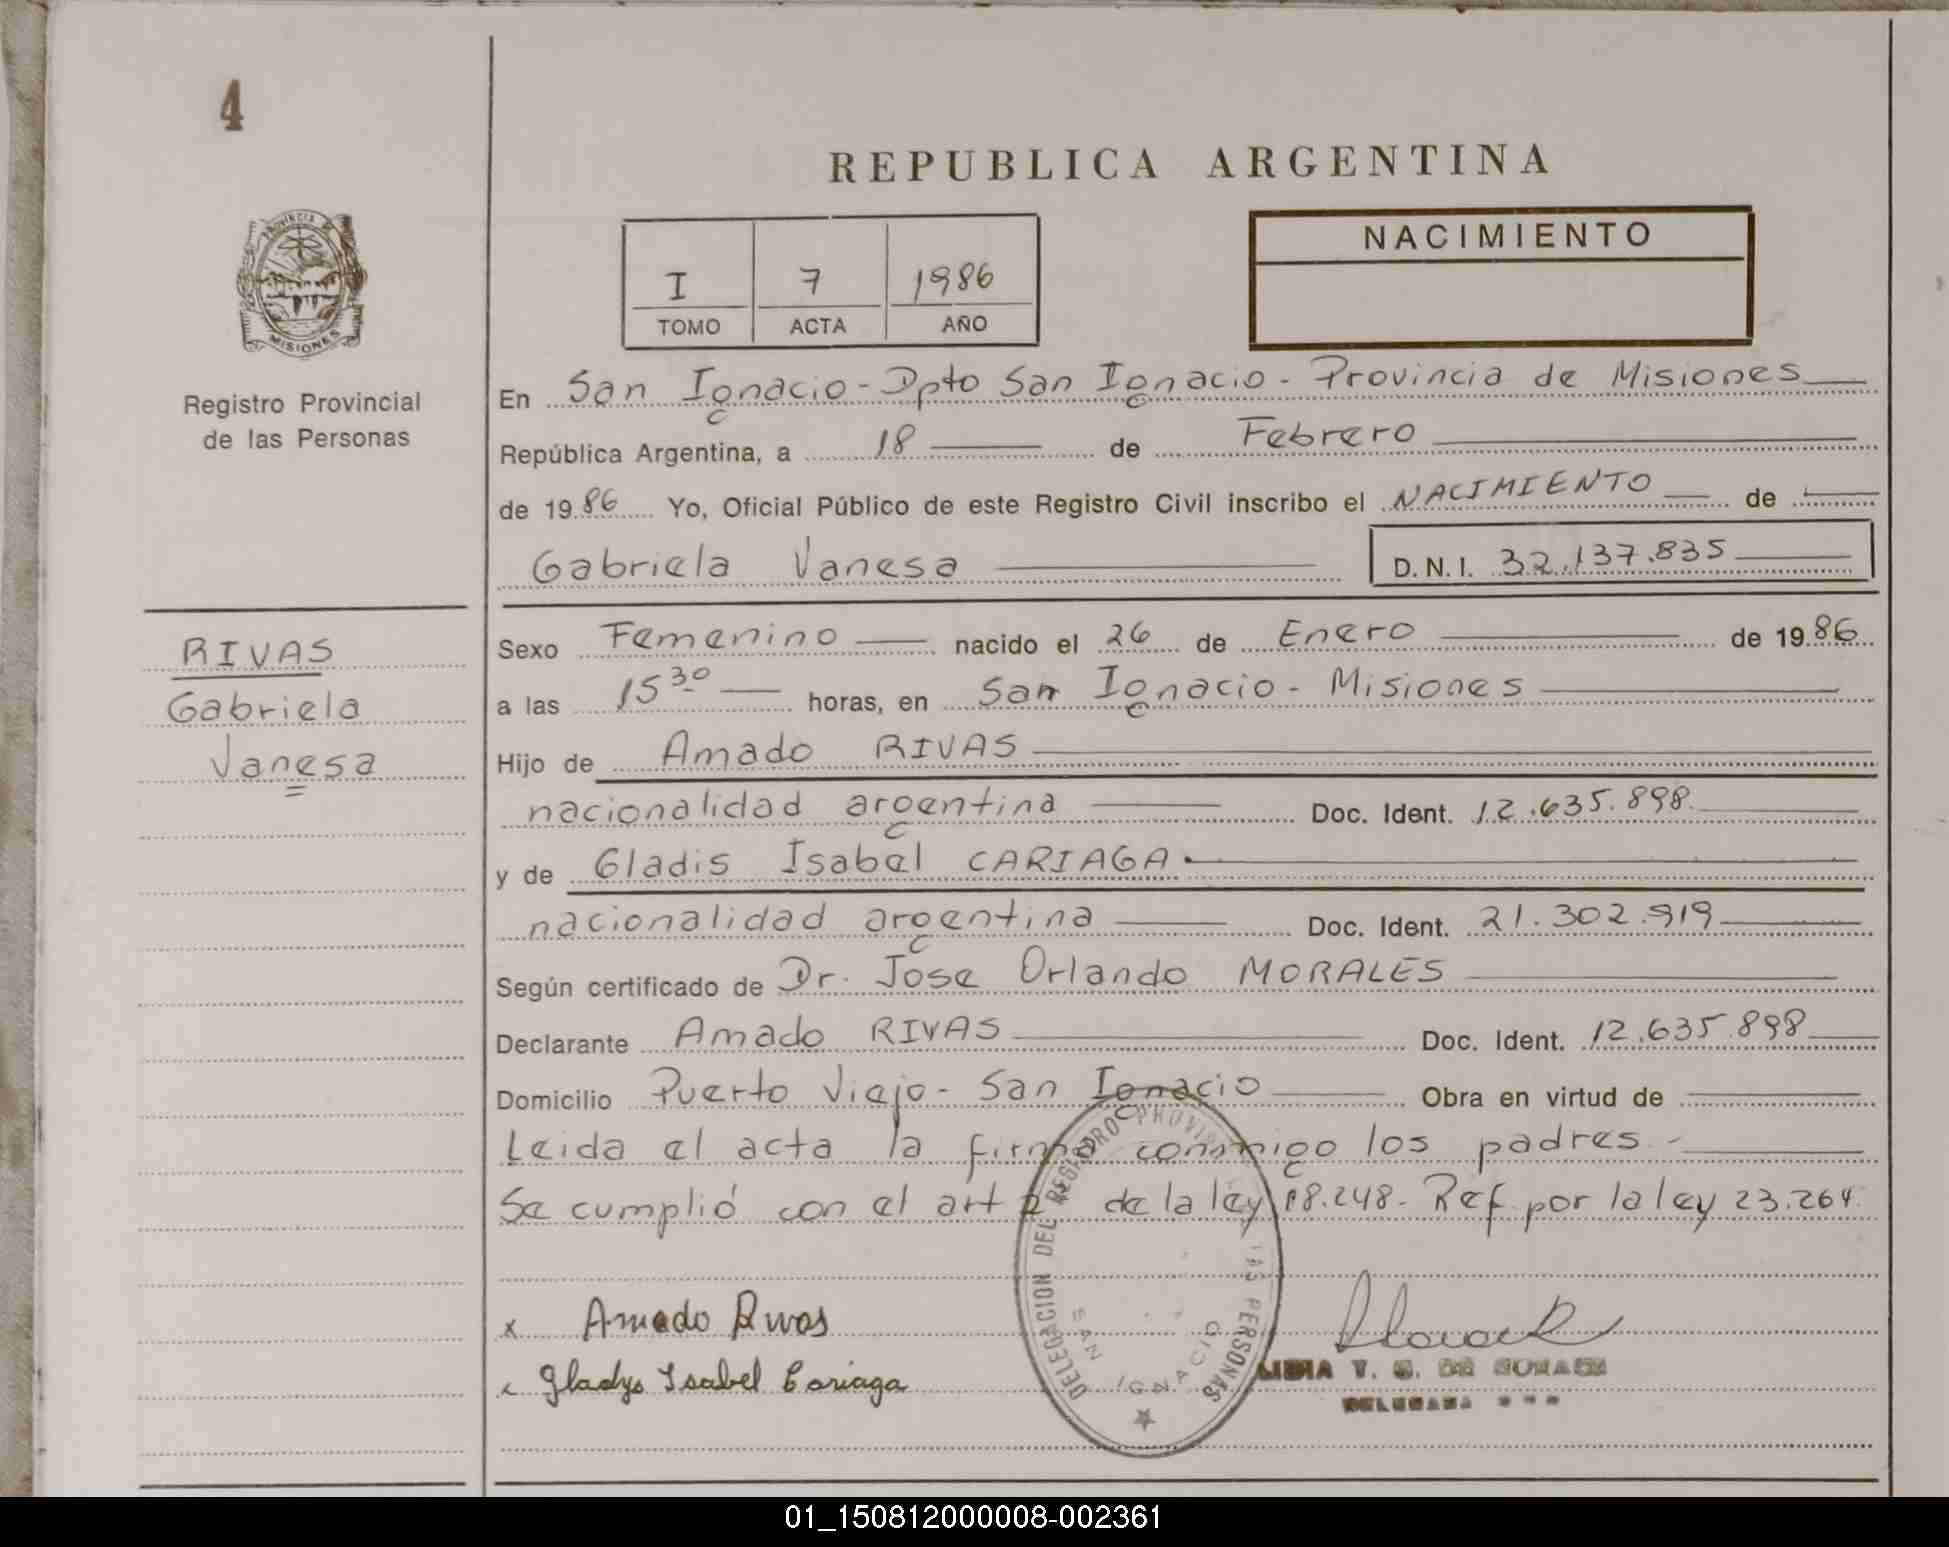 4
REPUBLICA ARGENTINA
PROVINCIA DE
MISIONES
Registro Provincial
de las Personas
I 7 1986
TOMO ACTA AÑO
NACIMIENTO
En San Ignacio - Dpto San Ignacio - Provincia de Misiones
República Argentina, a 18 de Febrero
de 1986 Yo, Oficial Público de este Registro Civil inscribo el NACIMIENTO de
Gabriela Vanesa D.N.I. 32.137.835
RIVAS
Gabriela
Vanesa
Sexo Femenino nacido el 26 de Enero de 1986
a las 15 30 horas, en San Ignacio - Misiones
Hijo de Amado RIVAS
nacionalidad argentina Doc. Ident. 12.635.898.
y de Gladis Isabel CARIAGA.
nacionalidad argentina Doc. Ident. 21.302.919
Según certificado de Dr. Jose Orlando MORALES
Declarante Amado RIVAS Doc. Ident. 12.635.898
Domicilio Puerto Viejo - San Ignacio Obra en virtud de
Leida el acta la firma conmigo los padres -
Se cumplió con el art 2° de la ley 18.248 - Ref. por la ley 23.264.
DELEGACION DEL REGISTRO PROVINCIAL LAS PERSONAS
SAN IGNACIO
x Amado Rivas
x Gladys Isabel Cariaga
LIDIA V. DE
01_150812000008-002361